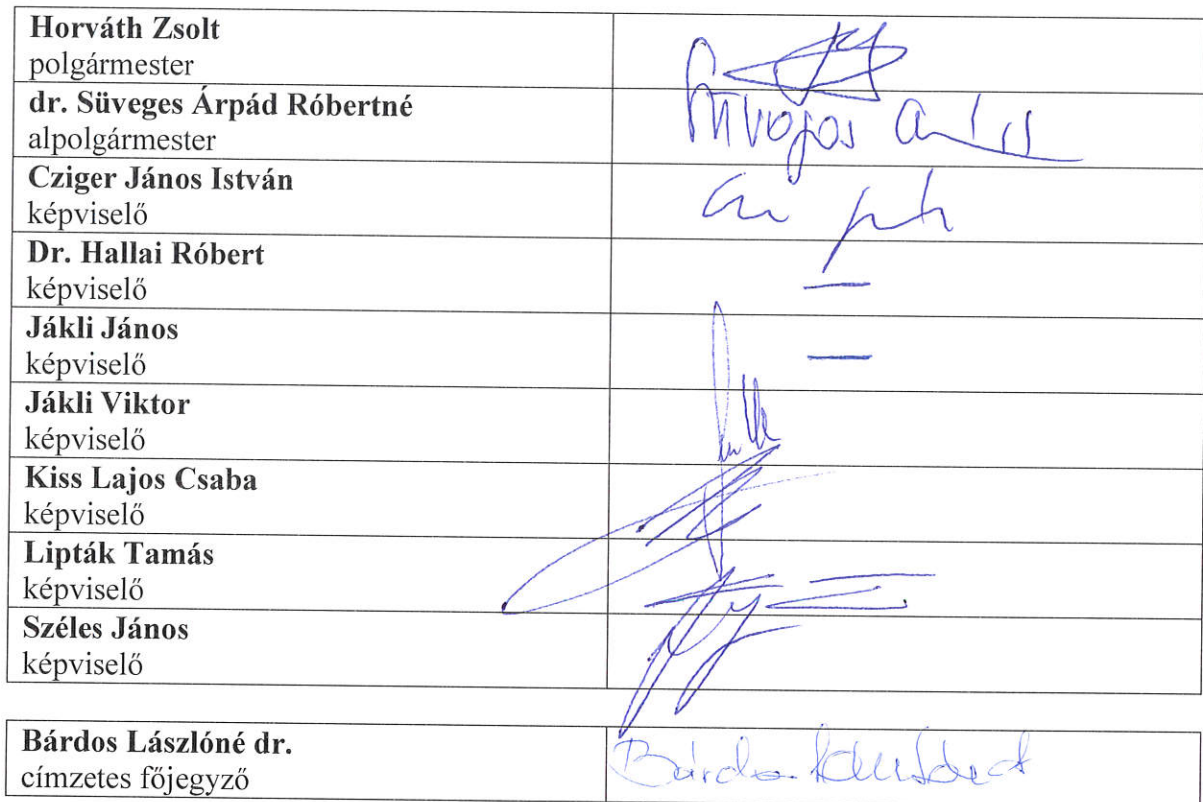 Horváth Zsolt
polgármester
dr. Süveges Árpád Róbertné
alpolgármester
Cziger János István
képviselő
Dr. Hallai Róbert
képviselő
—
Jákli János
képviselő
—
Jákli Viktor
képviselő
Kiss Lajos Csaba
képviselő
Lipták Tamás
képviselő
Széles János
képviselő
Bárdos Lászlóné dr.
címzetes főjegyző